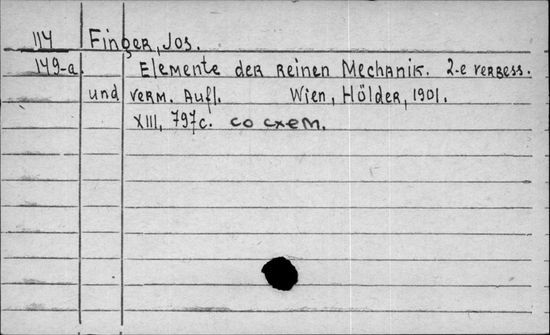 114 Finger, Jos.
149-a. Elemente der reinen Mechanik. 2-e verbess.
und verm. Aufl. Wien, Hölder, 1901.
XIII, 797c. со схем.